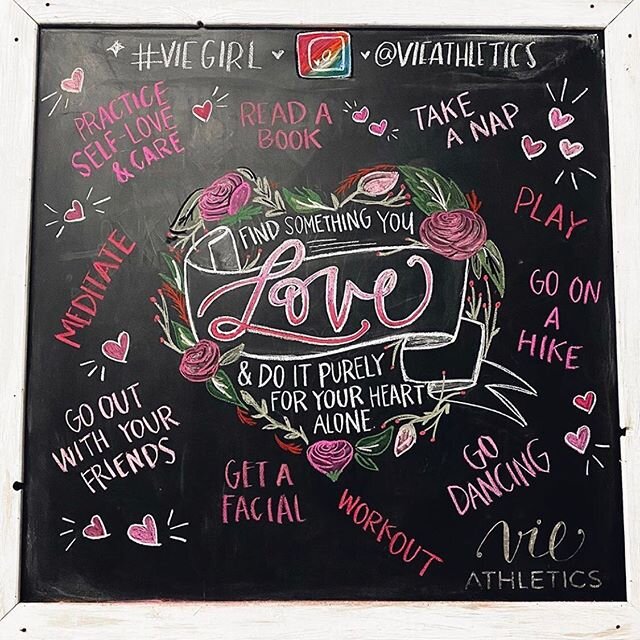 #VIEGIRL @VIEATHLETICS
PRACTICE
SELF-LOVE
& CARE
READ A
BOOK
TAKE
A NAP
PLAY
MEDITATE
FIND SOMETHING YOU
Love
& DO IT PURELY
FOR YOUR HEART
ALONE.
GO ON
A
HIKE
GO OUT
WITH YOUR
FRIENDS
GET A
FACIAL
WORKOUT
GO
DANCING
vie
ATHLETICS